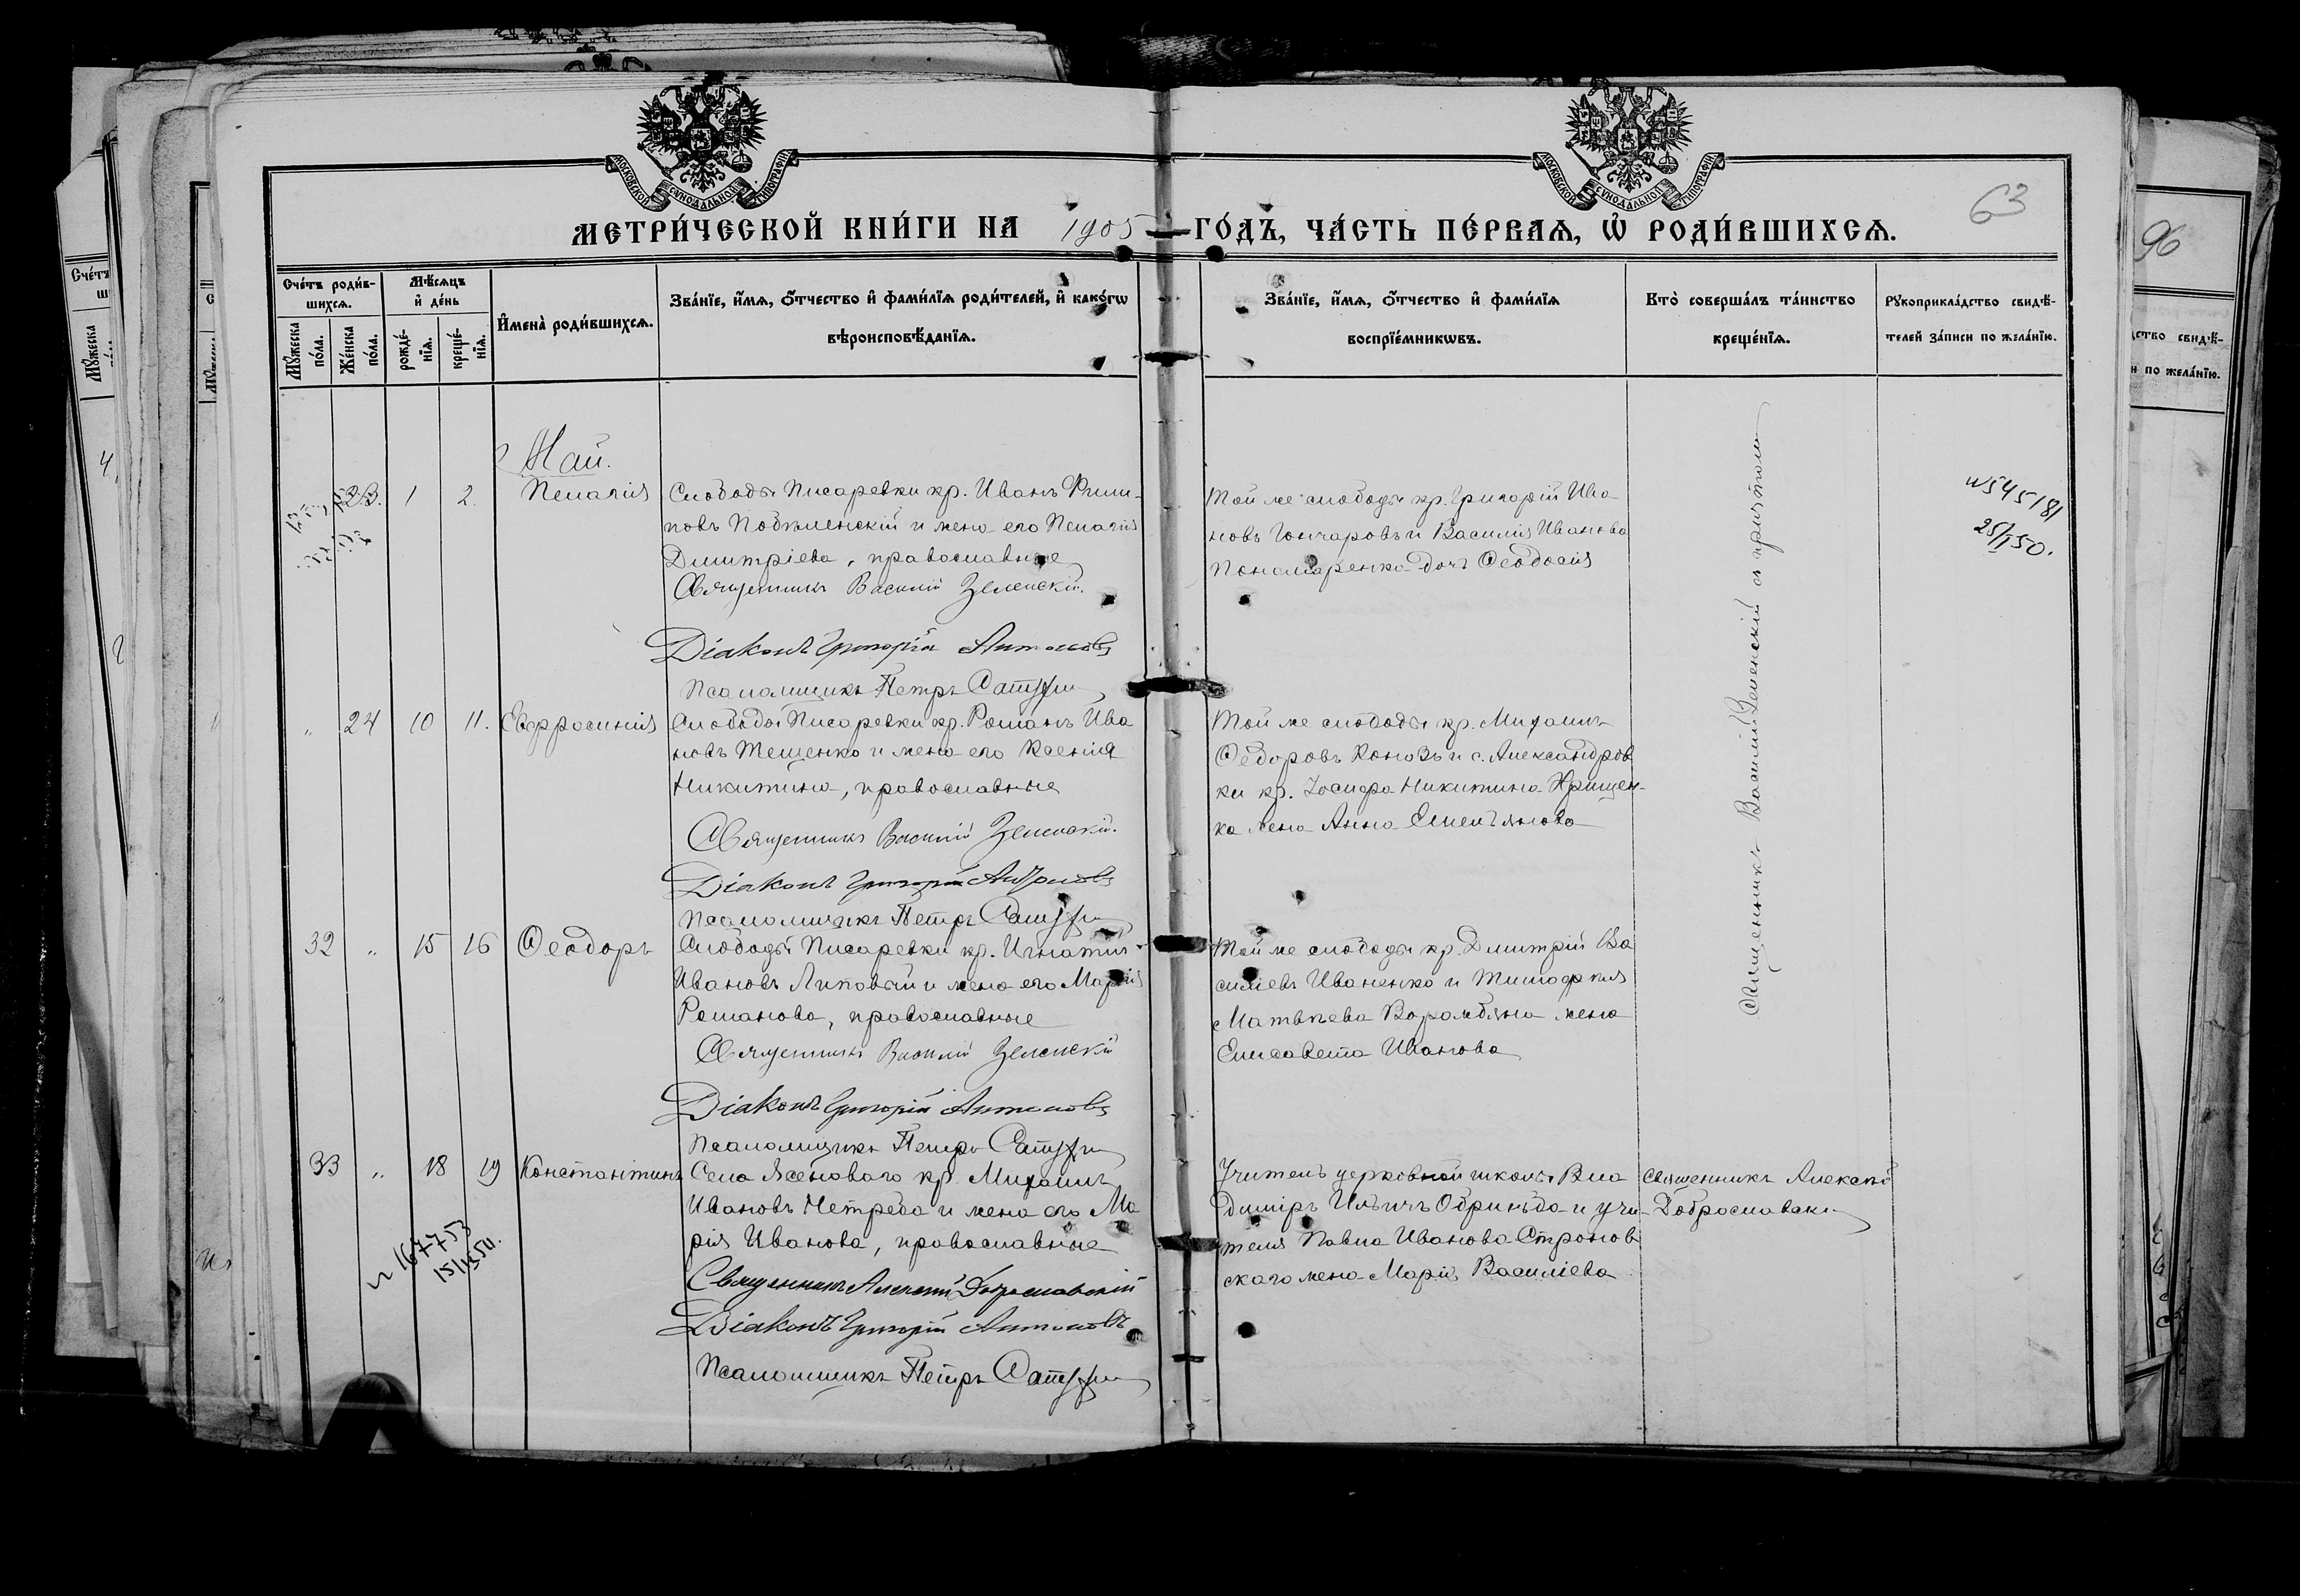 МОСКОВСКОЙ СѴНОДАЛЬНОЙ ТИПОГРАФІИ
МОСКОВСКОЙ СѴНОДАЛЬНОЙ ТИПОГРАФІИ
63
МЕТРИ́ЧЕСКОЙ КНИ́ГИ НА 1905 ГО́ДЪ, ЧА́СТЬ ПЕ́РВАЯ, Ѡ РОДИ́ВШИХСѦ.
Сче́тъ роди́в-
шихсѧ.
Мꙋ́жеска по́ла.
Же́нска по́ла.
Мѣ́сѧцъ
и҆ де́нь
рожде́-
нїѧ.
креще́-
нїѧ.
И҆мена̀ роди́вшихсѧ.
Зва́нїе, и҆́мѧ, ѻ҆́тчество и҆ фами́лїѧ роди́телей, и҆ како́гѡ
вѣроисповѣ́данїѧ.
Зва́нїе, и҆́мѧ, ѻ҆́тчество и҆ фами́лїѧ
воспрїе́мникѡвъ.
Кто̀ соверша́лъ та́инство
креще́нїѧ.
Рꙋкоприкла́дство свидѣ́-
телей за́писи по жела́нїю.
Май.
23. 1 2. Пелагія
Слободы Писаревки кр. Иванъ Филип-
повъ и жена его Пелагія
Дмитріева, православные
Священникъ Василій Зеленскій.
Діаконъ Григорій Антоновъ
Псаломщикъ Петръ
Той же слободы кр. Григорій Ива
новъ Гончаровъ и Василія Иванова
Пономаренка дочь Ѳеодосія
Священникъ Василій Зеленскій съ причтомъ
N 545181
25/I 50.
" 24 10 11. Евфросинія
Слободы Писаревки кр. Романъ Ива
новъ Тещенко и жена его Ксенія
Никитина, православные
Священникъ Василій Зеленскій.
Діаконъ Григорій Антоновъ
Псаломщикъ Петръ
Той же слободы кр. Михаилъ
Ѳедоровъ и с. Александров
ки кр. Іосифа Никитина Грищен-
ка жена Анна Емельянова
32 " 15 16 Ѳеодоръ
Слободы Писаревки кр. Игнатій
Ивановъ Липовый и жена его Марія
Романова, православные
Священникъ Василій Зеленскій
Діаконъ Григорій Антоновъ
Псаломщикъ Петръ
Той же слободы кр. Дмитрій Ва
силіевъ Иваненко и Тимофея
Матвѣева жена
Елисавета Иванова
33 " 18 19 Константинъ
Села Ясеноваго кр. Михаилъ
Ивановъ Нетреба и жена его Ма
рія Иванова, православные
Священникъ Алексѣй Доброславскій
Діаконъ Григорій Антоновъ
Псаломщикъ Петръ
Учитель церковной школы Вла
диміръ Ильичъ и учи-
теля Павла Иванова Стронов
скаго жена Марія Василіева
Священникъ Алексѣй
Доброславскій
N 167753
96